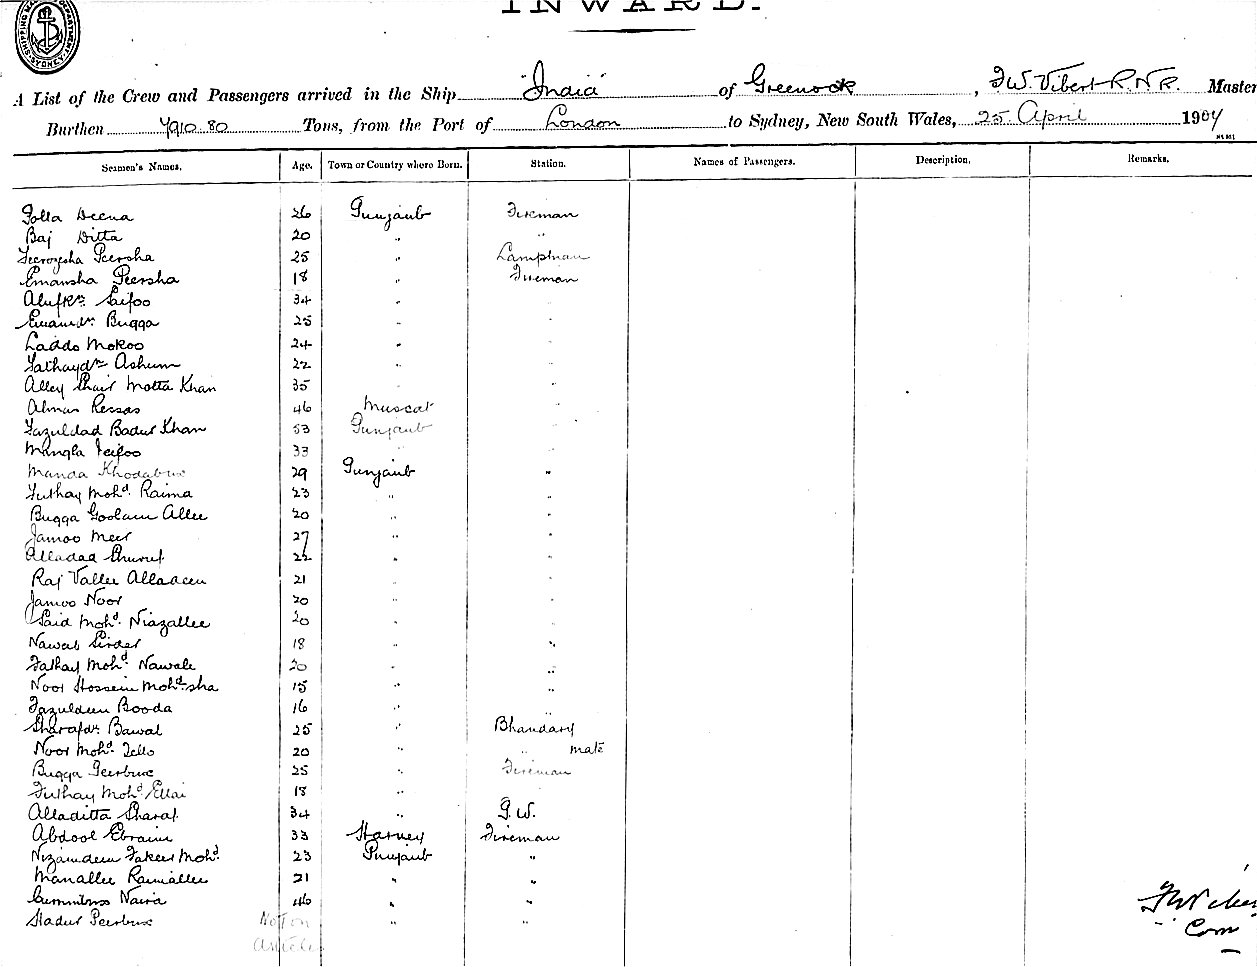 INWARD.
A List of the Crew and Passengers arrived in the Ship "India" of Greenock, F.W. Vibert R.N.R. Master
Burthen 7910.80 Tons, from the Port of London to Sydney, New South Wales, 25 April 1904
Seamen's Names. Age. Town or Country where Born. Station. Names of Passengers. Description. Remarks.
Golla Deena 26 Punjaub Fireman
Baj Ditta 20 " "
Peersha 25 " Lampman
Emamsha Peersha 18 " Fireman
34 " "
Bugga 25 " "
Laddo Mokoo 24 " "
22 " "
Alley Motta Khan 35 " "
46 Muscat "
Fazuldad Badur Khan 53 Punjaub "
Mangla 33 " "
Manda Khodabux 29 Punjaub "
Futhay Mohd. Raima 23 " "
Bugga Goolam Allee 20 " "
Jamoo Meer 27 " "
Alladad 22 " "
Raj Vallee 21 " "
Jamoo Noor 20 " "
Said Mohd. Niazallee 20 " "
Nawab 18 " "
Fathay Mohd. Nawale 20 " "
Noor Hossein Mohd.sha 15 " "
Fazuldeen Booda 16 " "
Sharafdn. Bawal 25 " Bhandary
Noor Mohd. 20 " " mate
Bugga Peerbux 25 " Fireman
Futhay Mohd. 18 "
Alladitta Sharaf 34 " G.W.
Abdool Ebraim 33 Fireman
Nizamdeen Fakeer Mohd. 23 Punjaub "
Manallee Ramallee 21 " "
46 " "
Peerbux Not on " "
Articles
Com